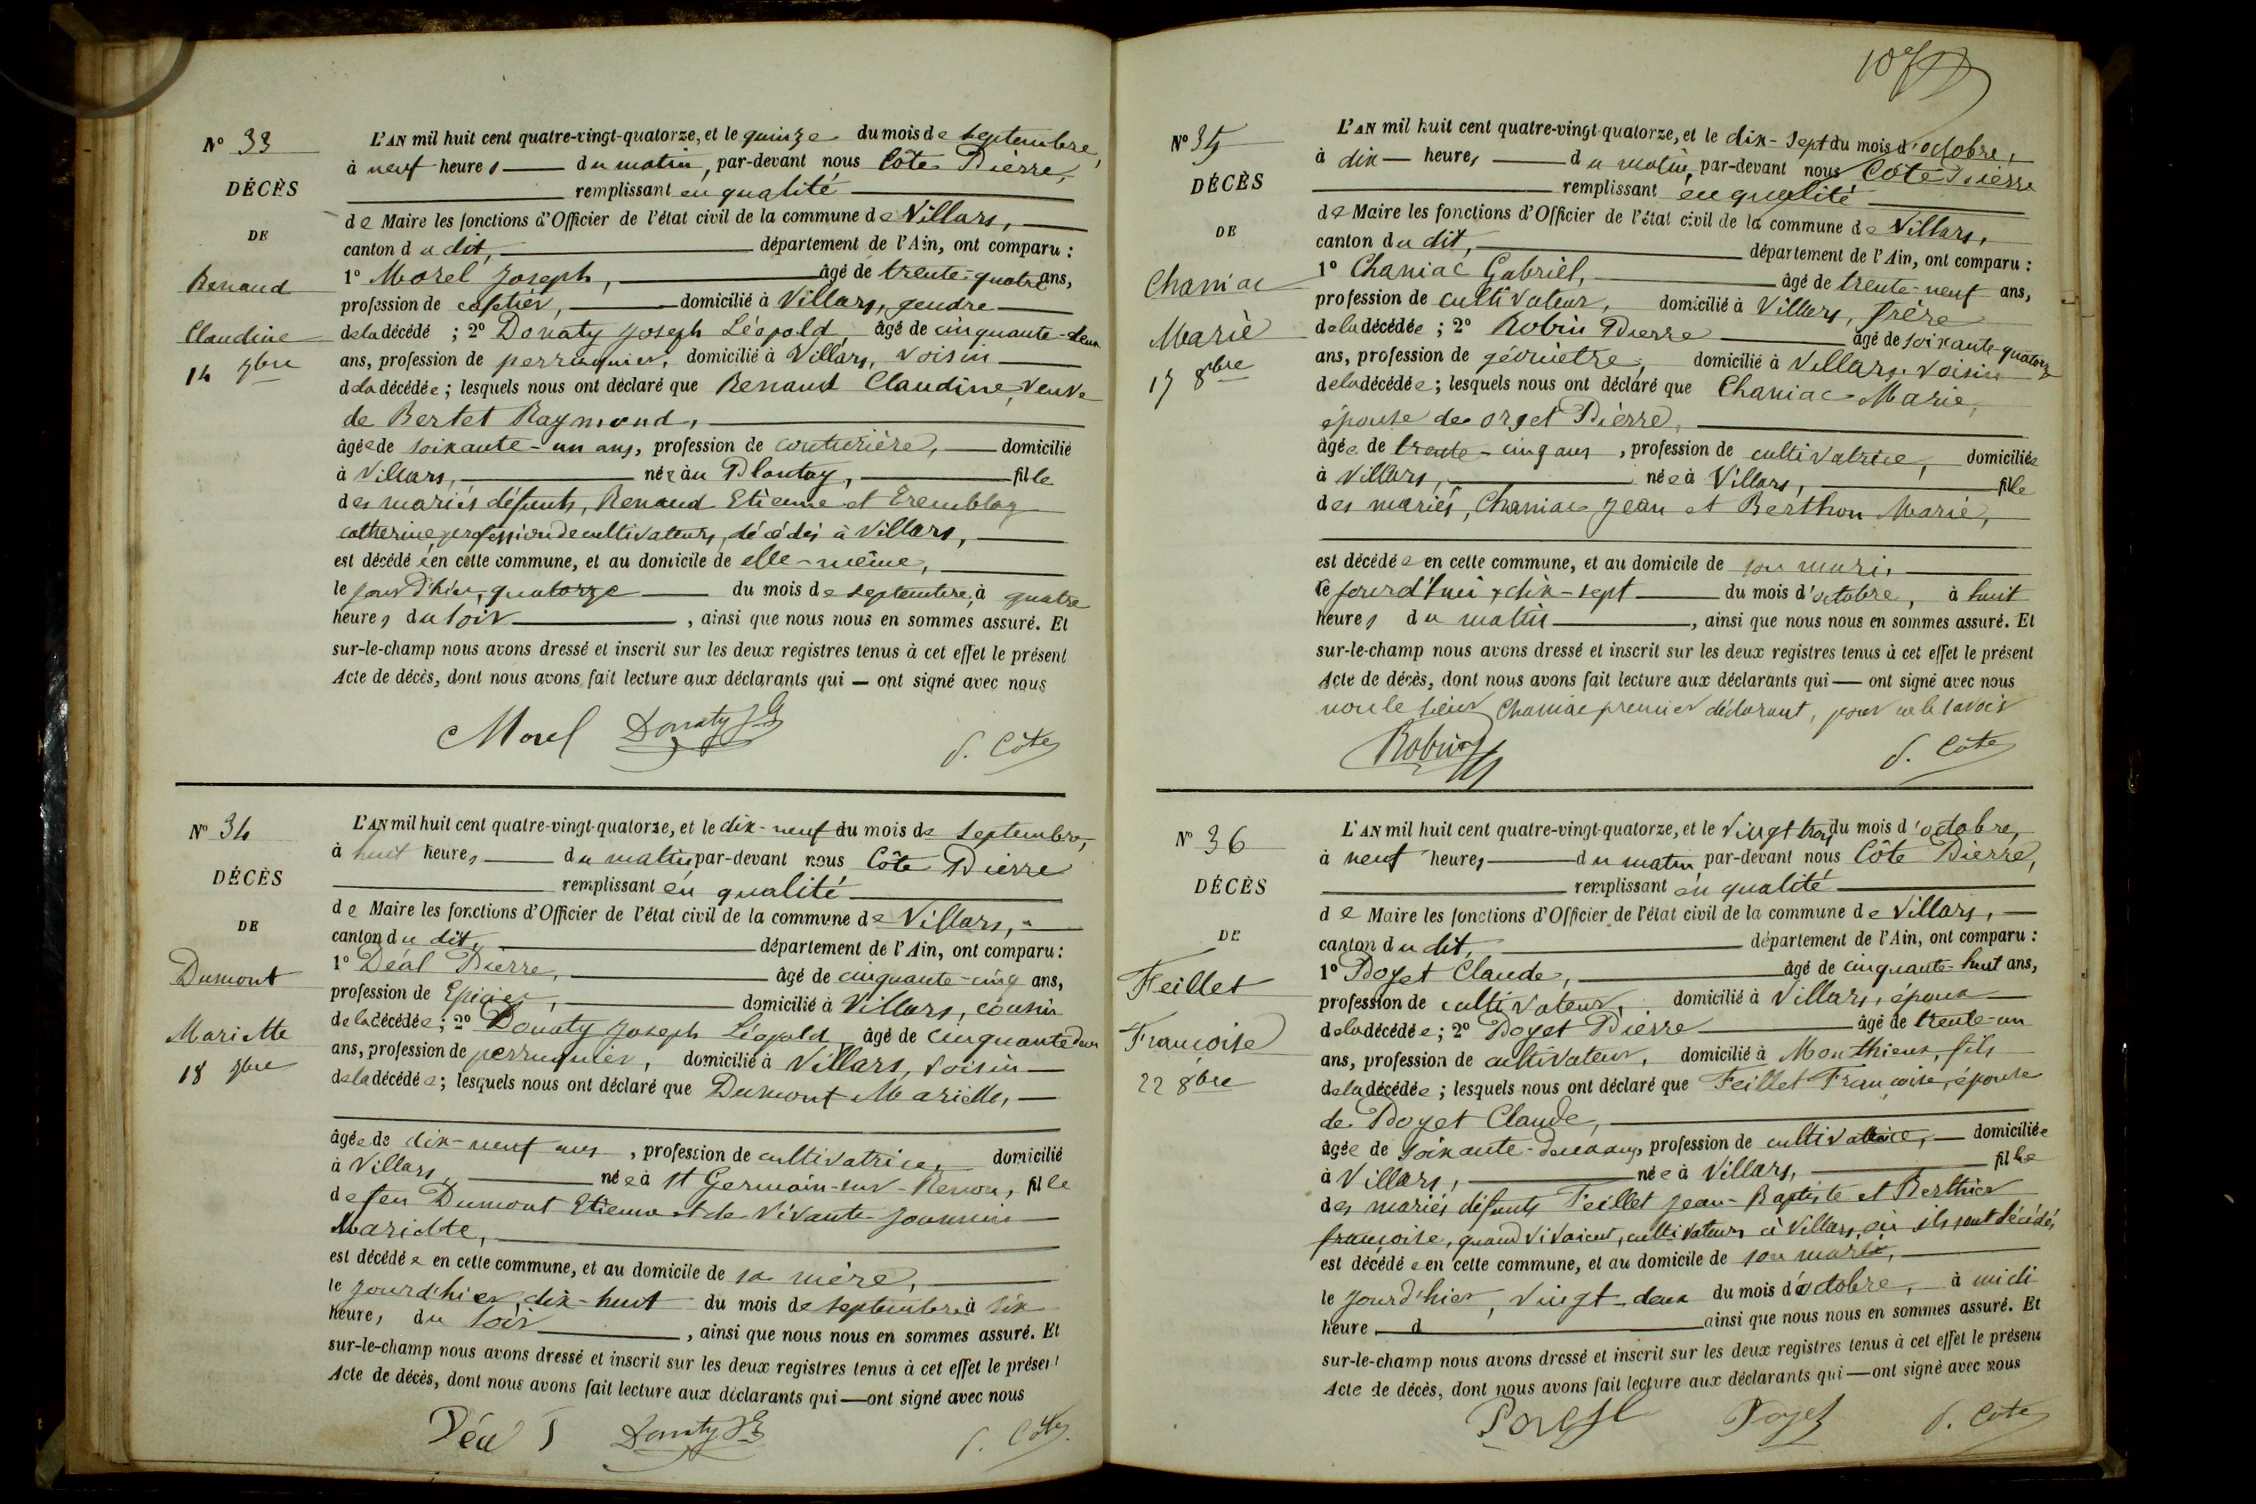 N° 33
DÉCÈS
DE
Renaud
Claudine
14 7bre
L'AN mil huit cent quatre-vingt-quatorze, et le quinze du mois de septembre,
à neuf heures du matin, par-devant nous Côte Pierre,
remplissant en qualité
de Maire les fonctions d'Officier de l'état civil de la commune de Villars,
canton du dit, département de l'Ain, ont comparu :
1° Morel Joseph, âgé de trente-quatre ans,
profession de cafetier, domicilié à Villars, gendre
de la décédé ; 2° Donaty Joseph Léopold, âgé de cinquante-deux
ans, profession de perruquier, domicilié à Villars, voisin
de la décédée ; lesquels nous ont déclaré que Renaud Claudine, veuve
de Bertet Raymond,
âgée de soixante-un ans, profession de couturière, domicilié
à Villars, née au Plantay, fille
des mariés défunts, Renaud Etienne et Tremblay
Catherine profession de cultivateurs, décédés à Villars,
est décédée en cette commune, et au domicile de elle-même,
le jour d'hier, quatorze du mois de septembre, à quatre
heures du soir, ainsi que nous nous en sommes assuré. Et
sur-le-champ nous avons dressé et inscrit sur les deux registres tenus à cet effet le présent
Acte de décès, dont nous avons fait lecture aux déclarants qui — ont signé avec nous
Morel Donaty JL P. Côte
N° 34
DÉCÈS
DE
Dumont
Mariette
18 7bre
L'AN mil huit cent quatre-vingt-quatorze, et le dix-neuf du mois de septembre,
à huit heures du matin par-devant nous Côte Pierre
remplissant en qualité
de Maire les fonctions d'Officier de l'état civil de la commune de Villars,
canton du dit, département de l'Ain, ont comparu :
1° Déal Pierre, âgé de cinquante-cinq ans,
profession de Epicier, domicilié à Villars, cousin
de la décédée ; 2° Donaty Joseph Léopold, âgé de cinquante deux
ans, profession de perruquier, domicilié à Villars, voisin
de la décédée ; lesquels nous ont déclaré que Dumont Mariette,
âgée de dix-neuf ans, profession de cultivatrice, domicilié
à Villars, née à St Germain-sur-Renon, fille
de feu Dumont Etienne et de vivante
Mariette,
est décédée en cette commune, et au domicile de sa mère,
le jour d'hier, dix-huit du mois de septembre à six
heures du soir, ainsi que nous nous en sommes assuré. Et
sur-le-champ nous avons dressé et inscrit sur les deux registres tenus à cet effet le présent
Acte de décès, dont nous avons fait lecture aux déclarants qui — ont signé avec nous
Déal Donaty JL P. Côte
N° 35
DÉCÈS
DE
Chaniac
Marie
17 8bre
L'AN mil huit cent quatre-vingt-quatorze, et le dix-sept du mois d'octobre,
à dix heures du matin, par-devant nous Côte Pierre
remplissant en qualité
de Maire les fonctions d'Officier de l'état civil de la commune de Villars,
canton du dit, département de l'Ain, ont comparu :
1° Chaniac Gabriel, âgé de trente-neuf ans,
profession de cultivateur, domicilié à Villars, frère
de la décédée ; 2° Robin Pierre âgé de soixante-quatorze
ans, profession de géomètre, domicilié à Villars, voisin
de la décédée ; lesquels nous ont déclaré que Chaniac Marie,
épouse de Orset Pierre,
âgée de trente-cinq ans, profession de cultivatrice, domiciliée
à Villars, née à Villars, fille
des mariés, Chaniac Jean et Berthon Marie,
est décédée en cette commune, et au domicile de son mari,
le jourd'hui, dix-sept du mois d'octobre, à huit
heures du matin, ainsi que nous nous en sommes assuré. Et
sur-le-champ nous avons dressé et inscrit sur les deux registres tenus à cet effet le présent
Acte de décès, dont nous avons fait lecture aux déclarants qui — ont signé avec nous
non le sieur Chaniac premier déclarant, pour ne le savoir
Robin P. Côte
N° 36
DÉCÈS
DE
Feillet
Françoise
22 8bre
L'AN mil huit cent quatre-vingt-quatorze, et le vingt trois du mois d'octobre,
à neuf heures du matin par-devant nous Côte Pierre,
remplissant en qualité
de Maire les fonctions d'Officier de l'état civil de la commune de Villars,
canton du dit, département de l'Ain, ont comparu :
1° Poyet Claude, âgé de cinquante-huit ans,
profession de cultivateur, domicilié à Villars, époux
de la décédée ; 2° Poyet Pierre âgé de trente-un
ans, profession de cultivateur, domicilié à Monthieux, fils
de la décédée ; lesquels nous ont déclaré que Feillet Françoise, épouse
de Poyet Claude,
âgée de soixante-deux ans, profession de cultivatrice, domiciliée
à Villars, née à Villars, fille
des mariés défunts Feillet Jean-Baptiste et Berthier
françoise, quand vivaient, cultivateurs à Villars, où ils sont décédés
est décédée en cette commune, et au domicile de son mari,
le jourd'hier, vingt-deux du mois d'octobre, à midi
heure d ainsi que nous nous en sommes assuré. Et
sur-le-champ nous avons dressé et inscrit sur les deux registres tenus à cet effet le présent
Acte de décès, dont nous avons fait lecture aux déclarants qui — ont signé avec nous
Poyet Poyet P. Côte